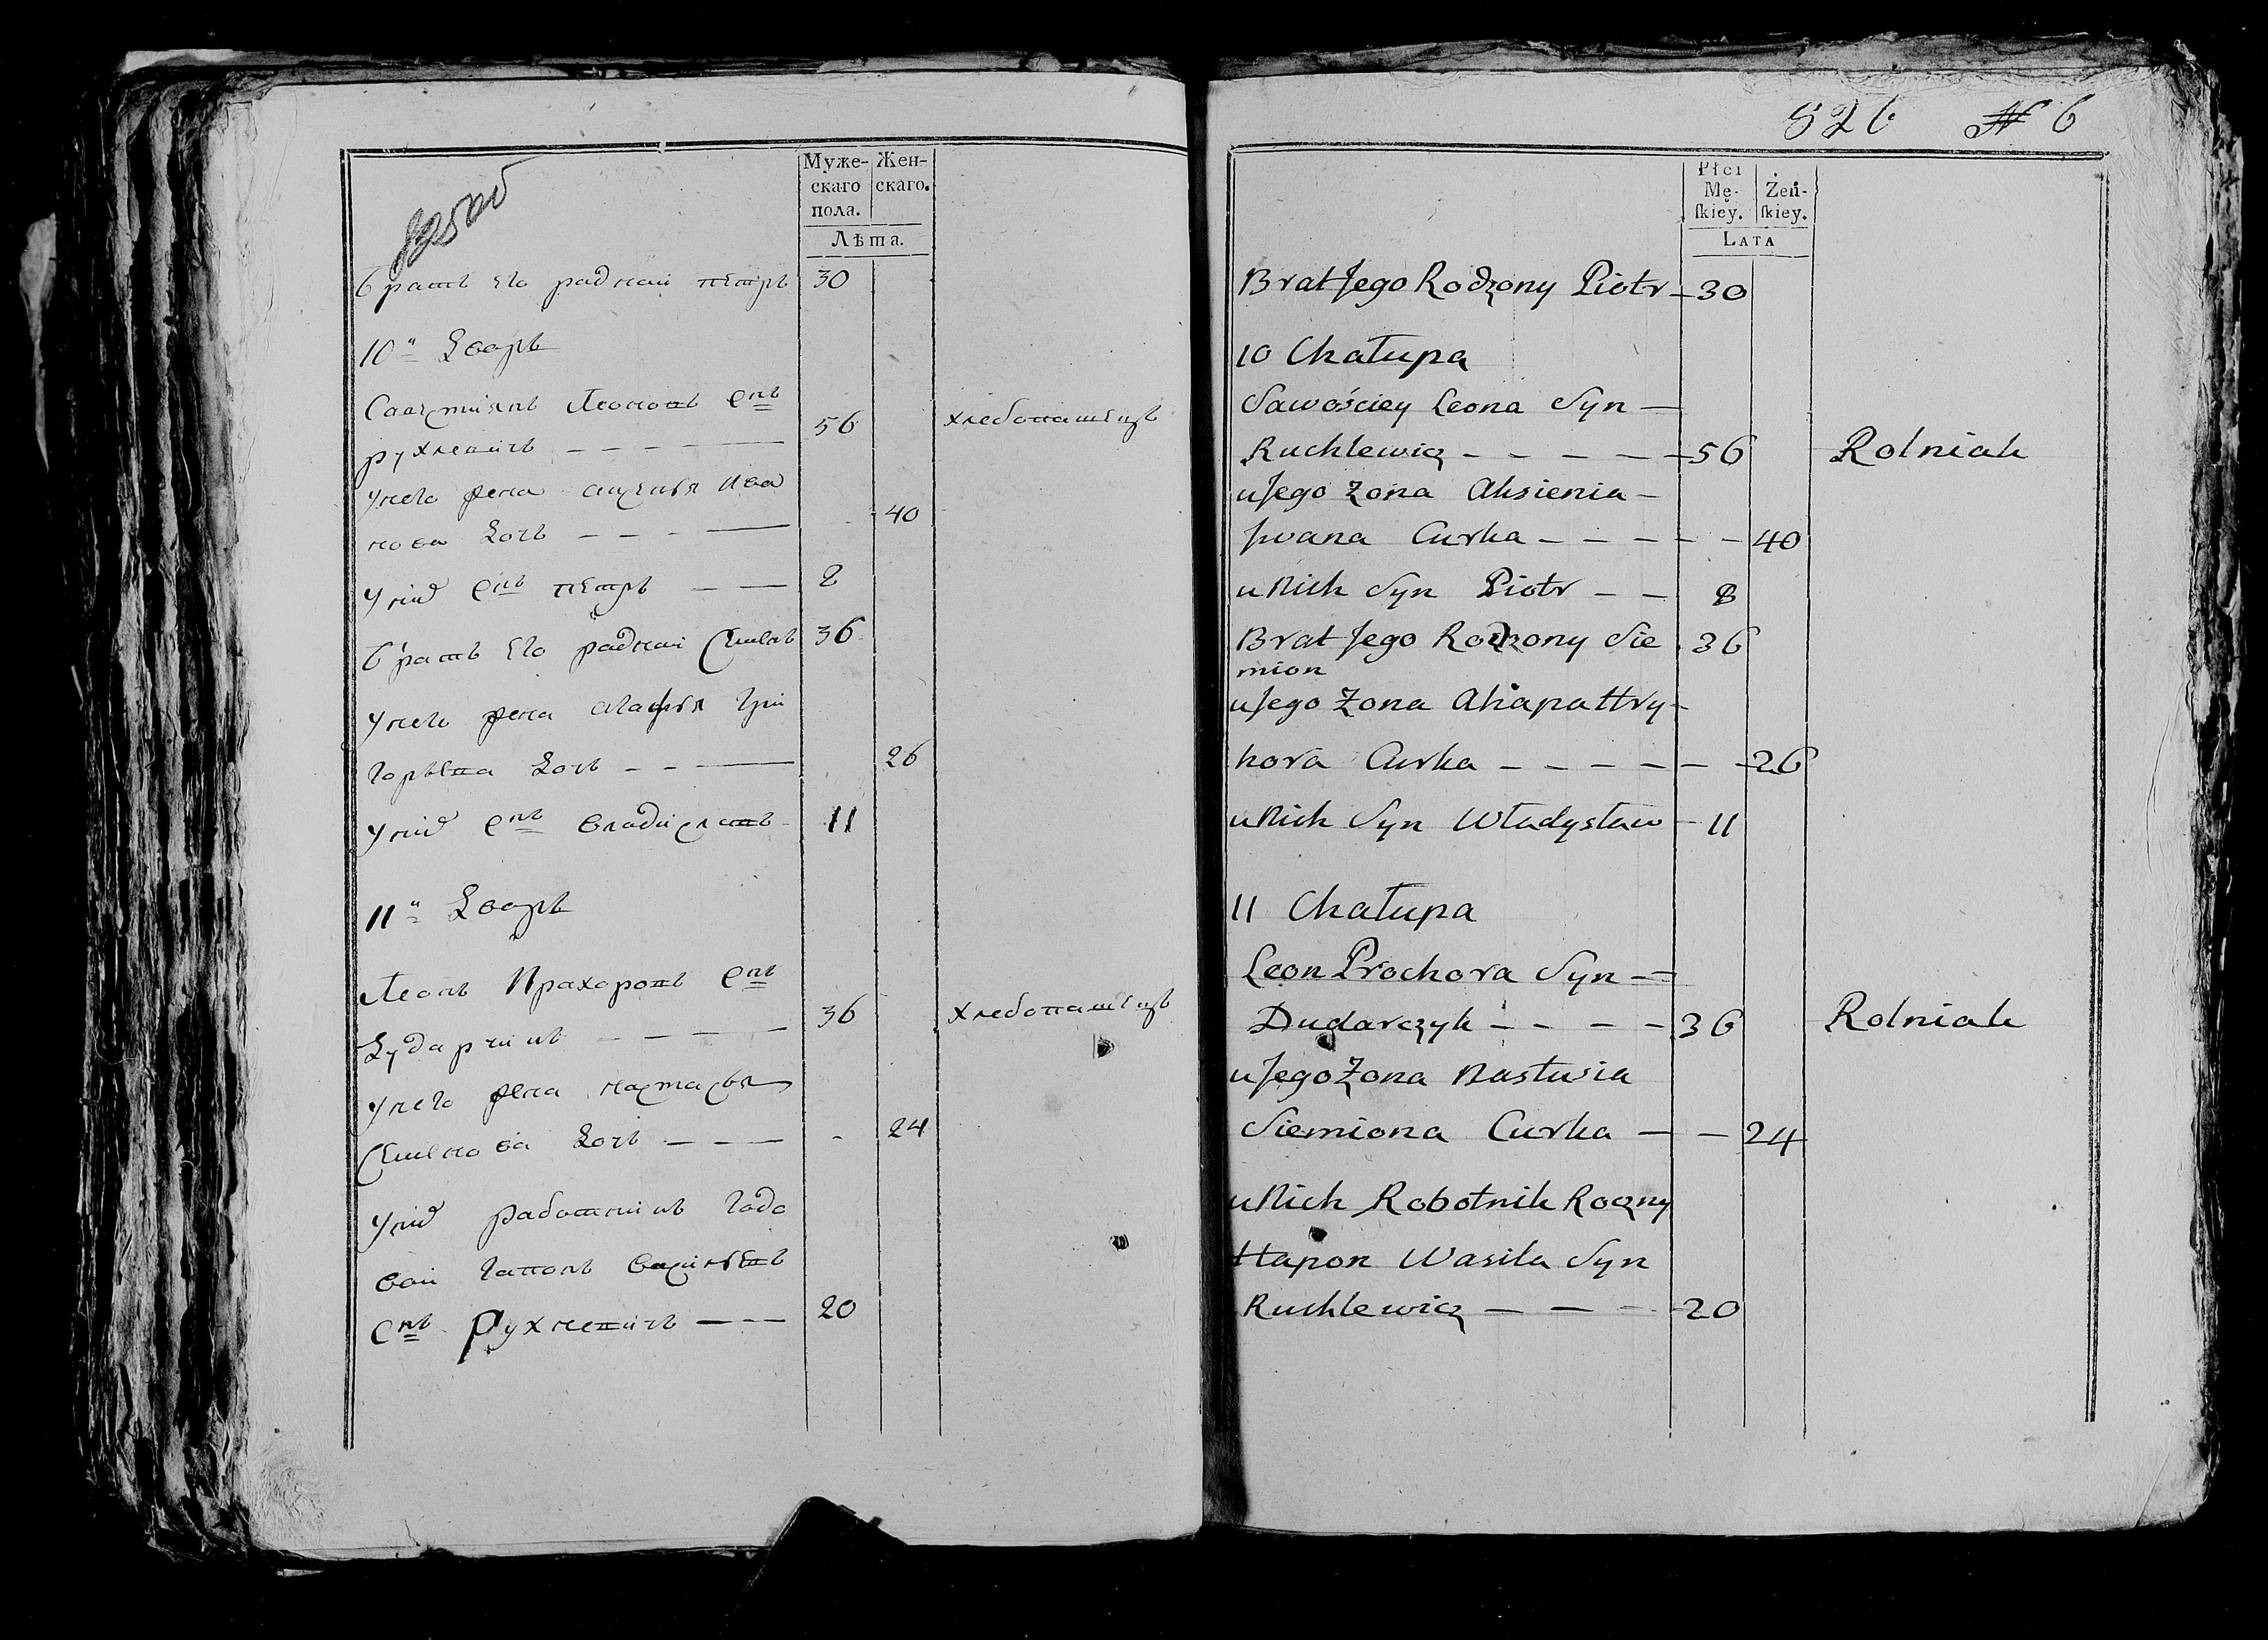 Муже-
скаго
пола.
Жен-
скаго.
Лѣта.
братъ его радной петръ 30
10й Дворъ
Савастиянъ Леоновъ снъ
рухлевичъ — — — 56 хлебопашецъ
унего жена аксенья Ива
нова дочь — — — 40
уних снъ петръ — — 8
братъ его радной Семенъ 36
унего жена агафья Гри
горьева дочь — — — 26
уних снъ владиславъ 11
11й Дворъ
Леонъ Прахоровъ снъ
Дударчикъ — — — — 36 хлебопашецъ
унего жена настасья
Семенова дочь — — — 24
уних работникъ годо
вой гапонъ васильевъ
снъ Рухлевичъ — — 20
526 № 6
Płci
Mę-
ſkiey.
Żeń-
ſkiey.
LATA
Brat Jego Rodzony Piotr — 30
10 Chałupa
Sawościey Leona Syn —
Ruchlewicz — — — — — 56 Rolniak
u Jego Żona Aksienia —
Jwana Curka — — — — — 40
u Nich Syn Piotr — — 8
Brat Jego Rodzony Sie 36
mion
u Jego Żona Ahapa Hry-
hora Curka — — — — — — 26
u Nich Syn Władysław — 11
11 Chałupa
Leon Prochora Syn =
Dudarczyk — — — — 36 Rolniak
u Jego Żona Nastusia
Siemiona Curka — — 24
u Nich Robotnik Roczny
Hapon Wasila Syn
Ruchlewicz — — — 20